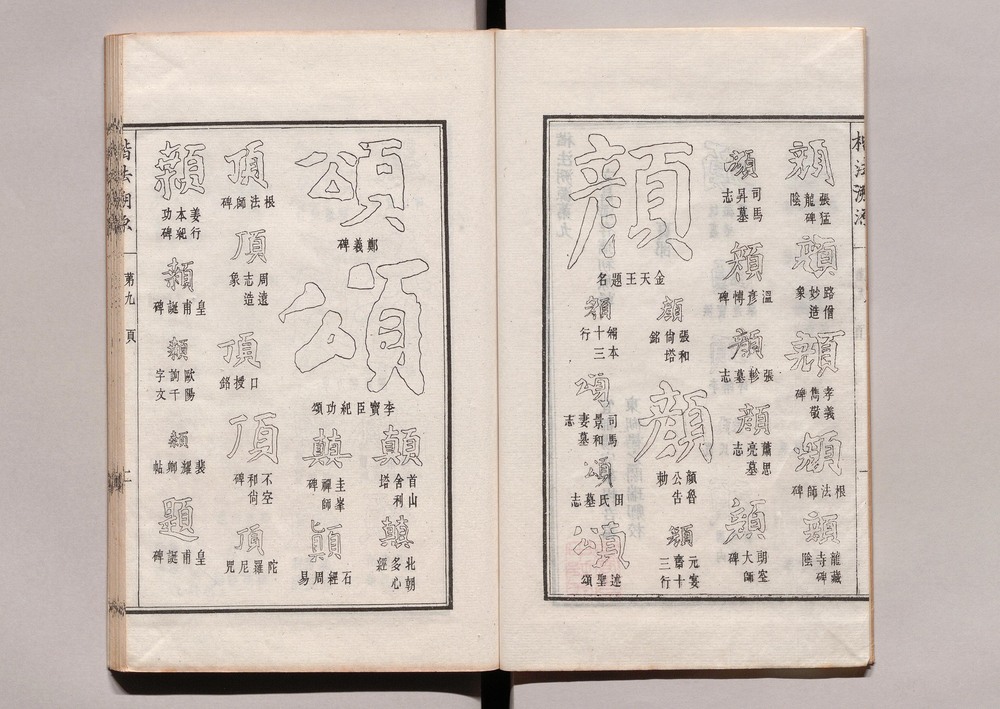 顏
張猛
龍碑
陰
顏
路僧
妙造
象
顏
孝義
雋敬
碑
顏
根法師碑
顏
龍藏
寺碑
陰
顏
司馬
昇墓
志
顏
溫彥博碑
顏
張軫墓志
顏
蕭思
亮墓
志
顏
朗空
大師
碑
顏
金天王題名
顏
張和
尙塔
銘
顏
顏魯
公告
勅
顏
元宴
齋十
三行
顏
褚本
十三
行
頌
司馬
景和
妻墓
志
頌
田氏墓志
頌
述聖頌
頌
鄭義碑
頌
李寶臣紀功頌
顛
首山
舍利
塔
顛
北朝
多心
經
顛
圭峯
禪師
碑
顛
石經周易
頂
根法師碑
頂
周遠
志造
象
頂
口授銘
頂
不空
和尙
碑
頂
陀羅尼咒
顙
姜行
本紀
功碑
顙
皇甫誕碑
顙
歐陽
詢千
字文
顙
裴耀卿帖
題
皇甫誕碑
楷法溯源
第九
頁